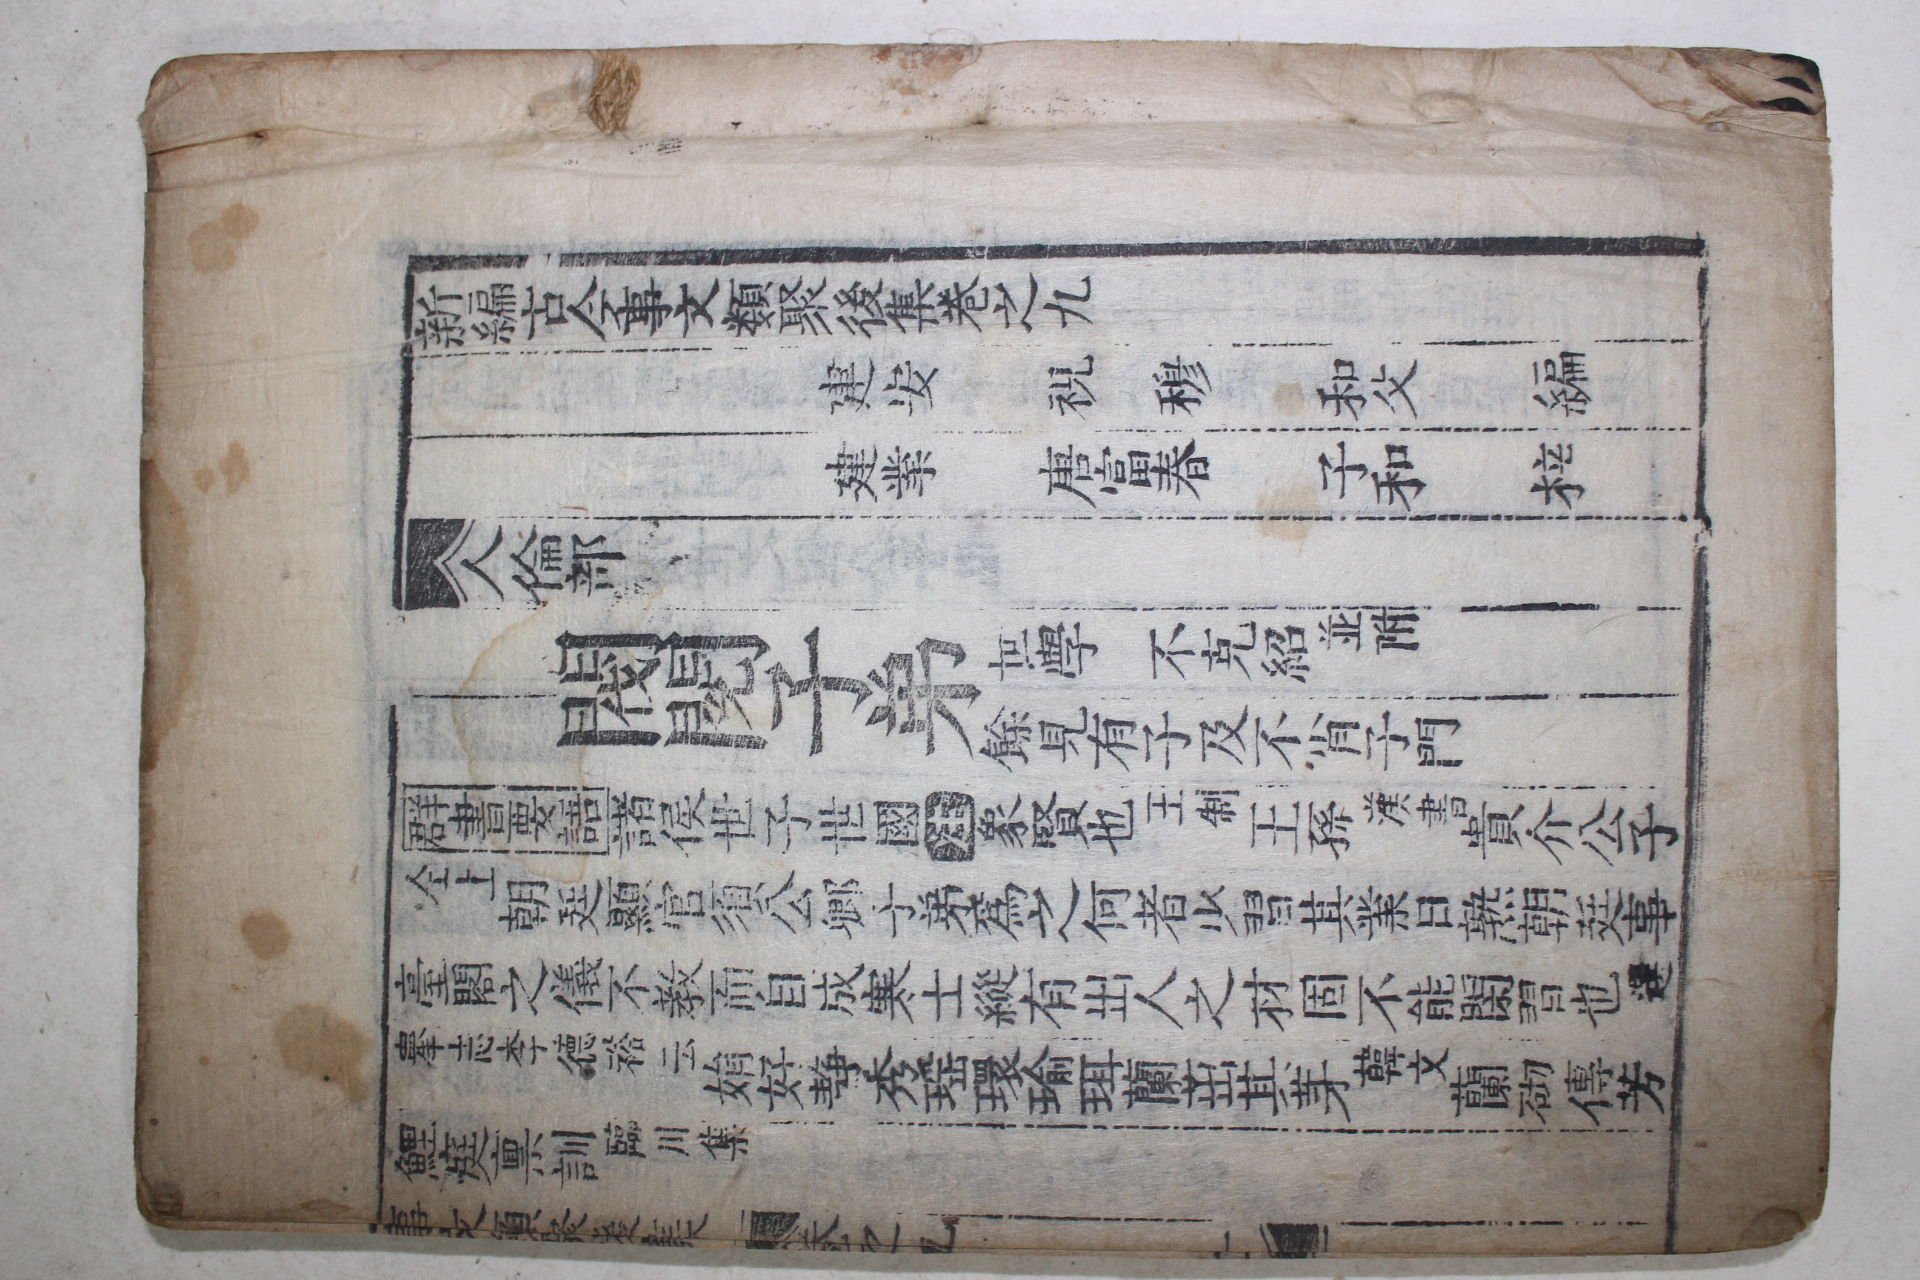 新編古今事文類聚後集卷之九
建安 祝 穆 和父 編
建業 唐富春 子和 梓
人倫部
閥閱子弟
世學 不克紹 並附
餘見有子及不肖子門
群書要語諸侯世子世國 象賢也 王制 王孫 漢書 貴介公子
仝上 朝廷顯官須公卿子弟爲之何者少習其業日熟朝廷事
臺閣之儀不教而自成寒士縱有出人之材固不能閑習也 選
舉志李德裕云 娟好靜秀瑶環瑜珥蘭茁其芽 韓文 蘭砌傳芳
鯉庭禀訓 臨川集
事文類聚後集 卷之九